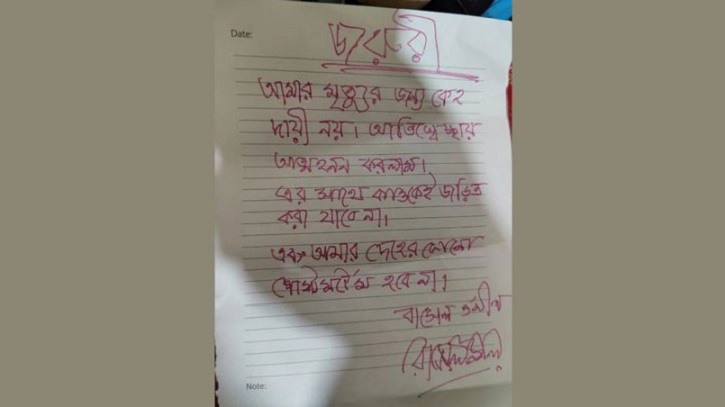 Date:
জরুরী
আমার মৃত্যুর জন্য কেহ
দায়ী নয়। আমি স্বেচ্ছায়
আত্মহনন করলাম।
এর সাথে কাউকেই জড়িত
করা যাবে না।
এবং আমার দেহের কোনো
পোস্টমর্টেম হবে না।
Note: